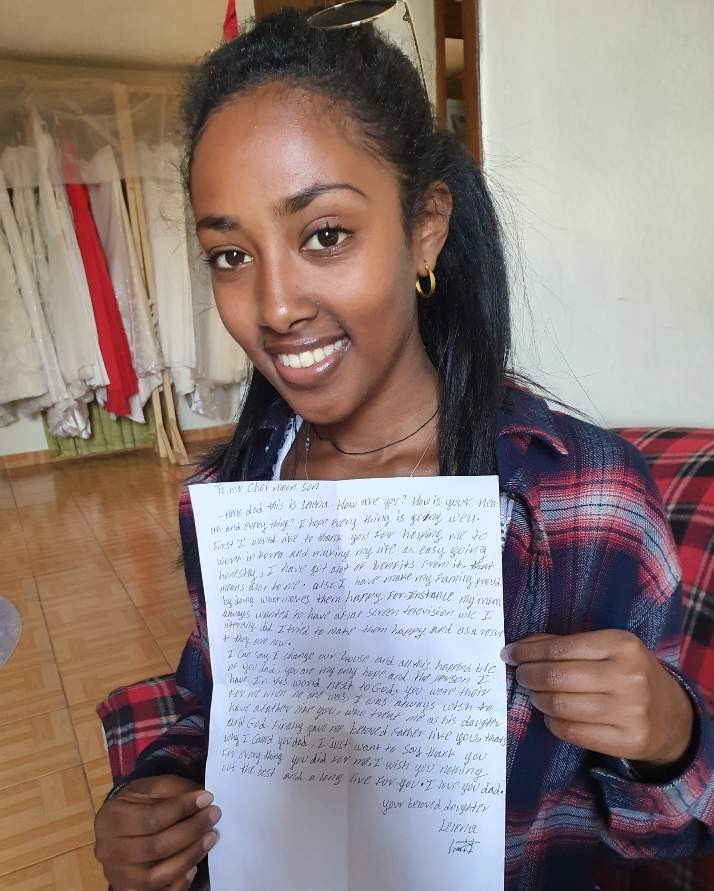 To mr Choi moon son
- Hello dad this is Leleria. How are you? How is your Hea
lth and every thing? I hope every thing is going well.
First I would live to thank you For helping me to
work in Korea and making my life an easy going
honestly, I have got alot of benefits From it. that
means alot to me. also I have make my Family Proud
by doing what makes them happy For instance my mom
always wanted to have aflat screen television w/c I
literally did. I tried to make them happy and as a resul
t they are now.
I can say I change our house and all this happend b/c
of you dad. you are my only hope and the person I
have In this word next to God. you were their
For me when no one was. I was always wish to
have afather like you. who treat me as his daughter
and God Finally gave me beloved Father like you. that's
why I Called you dad. I Just want to say thank you
For every thing you did For me. I wish you nothing
but the best and a long live For you. I love you dad.
your beloved daughter
Leleria